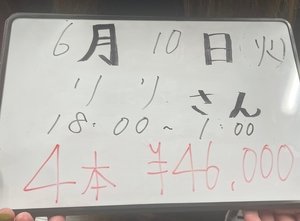 6月10日(火)
りりさん
18:00~1:00
4本 ¥46,000